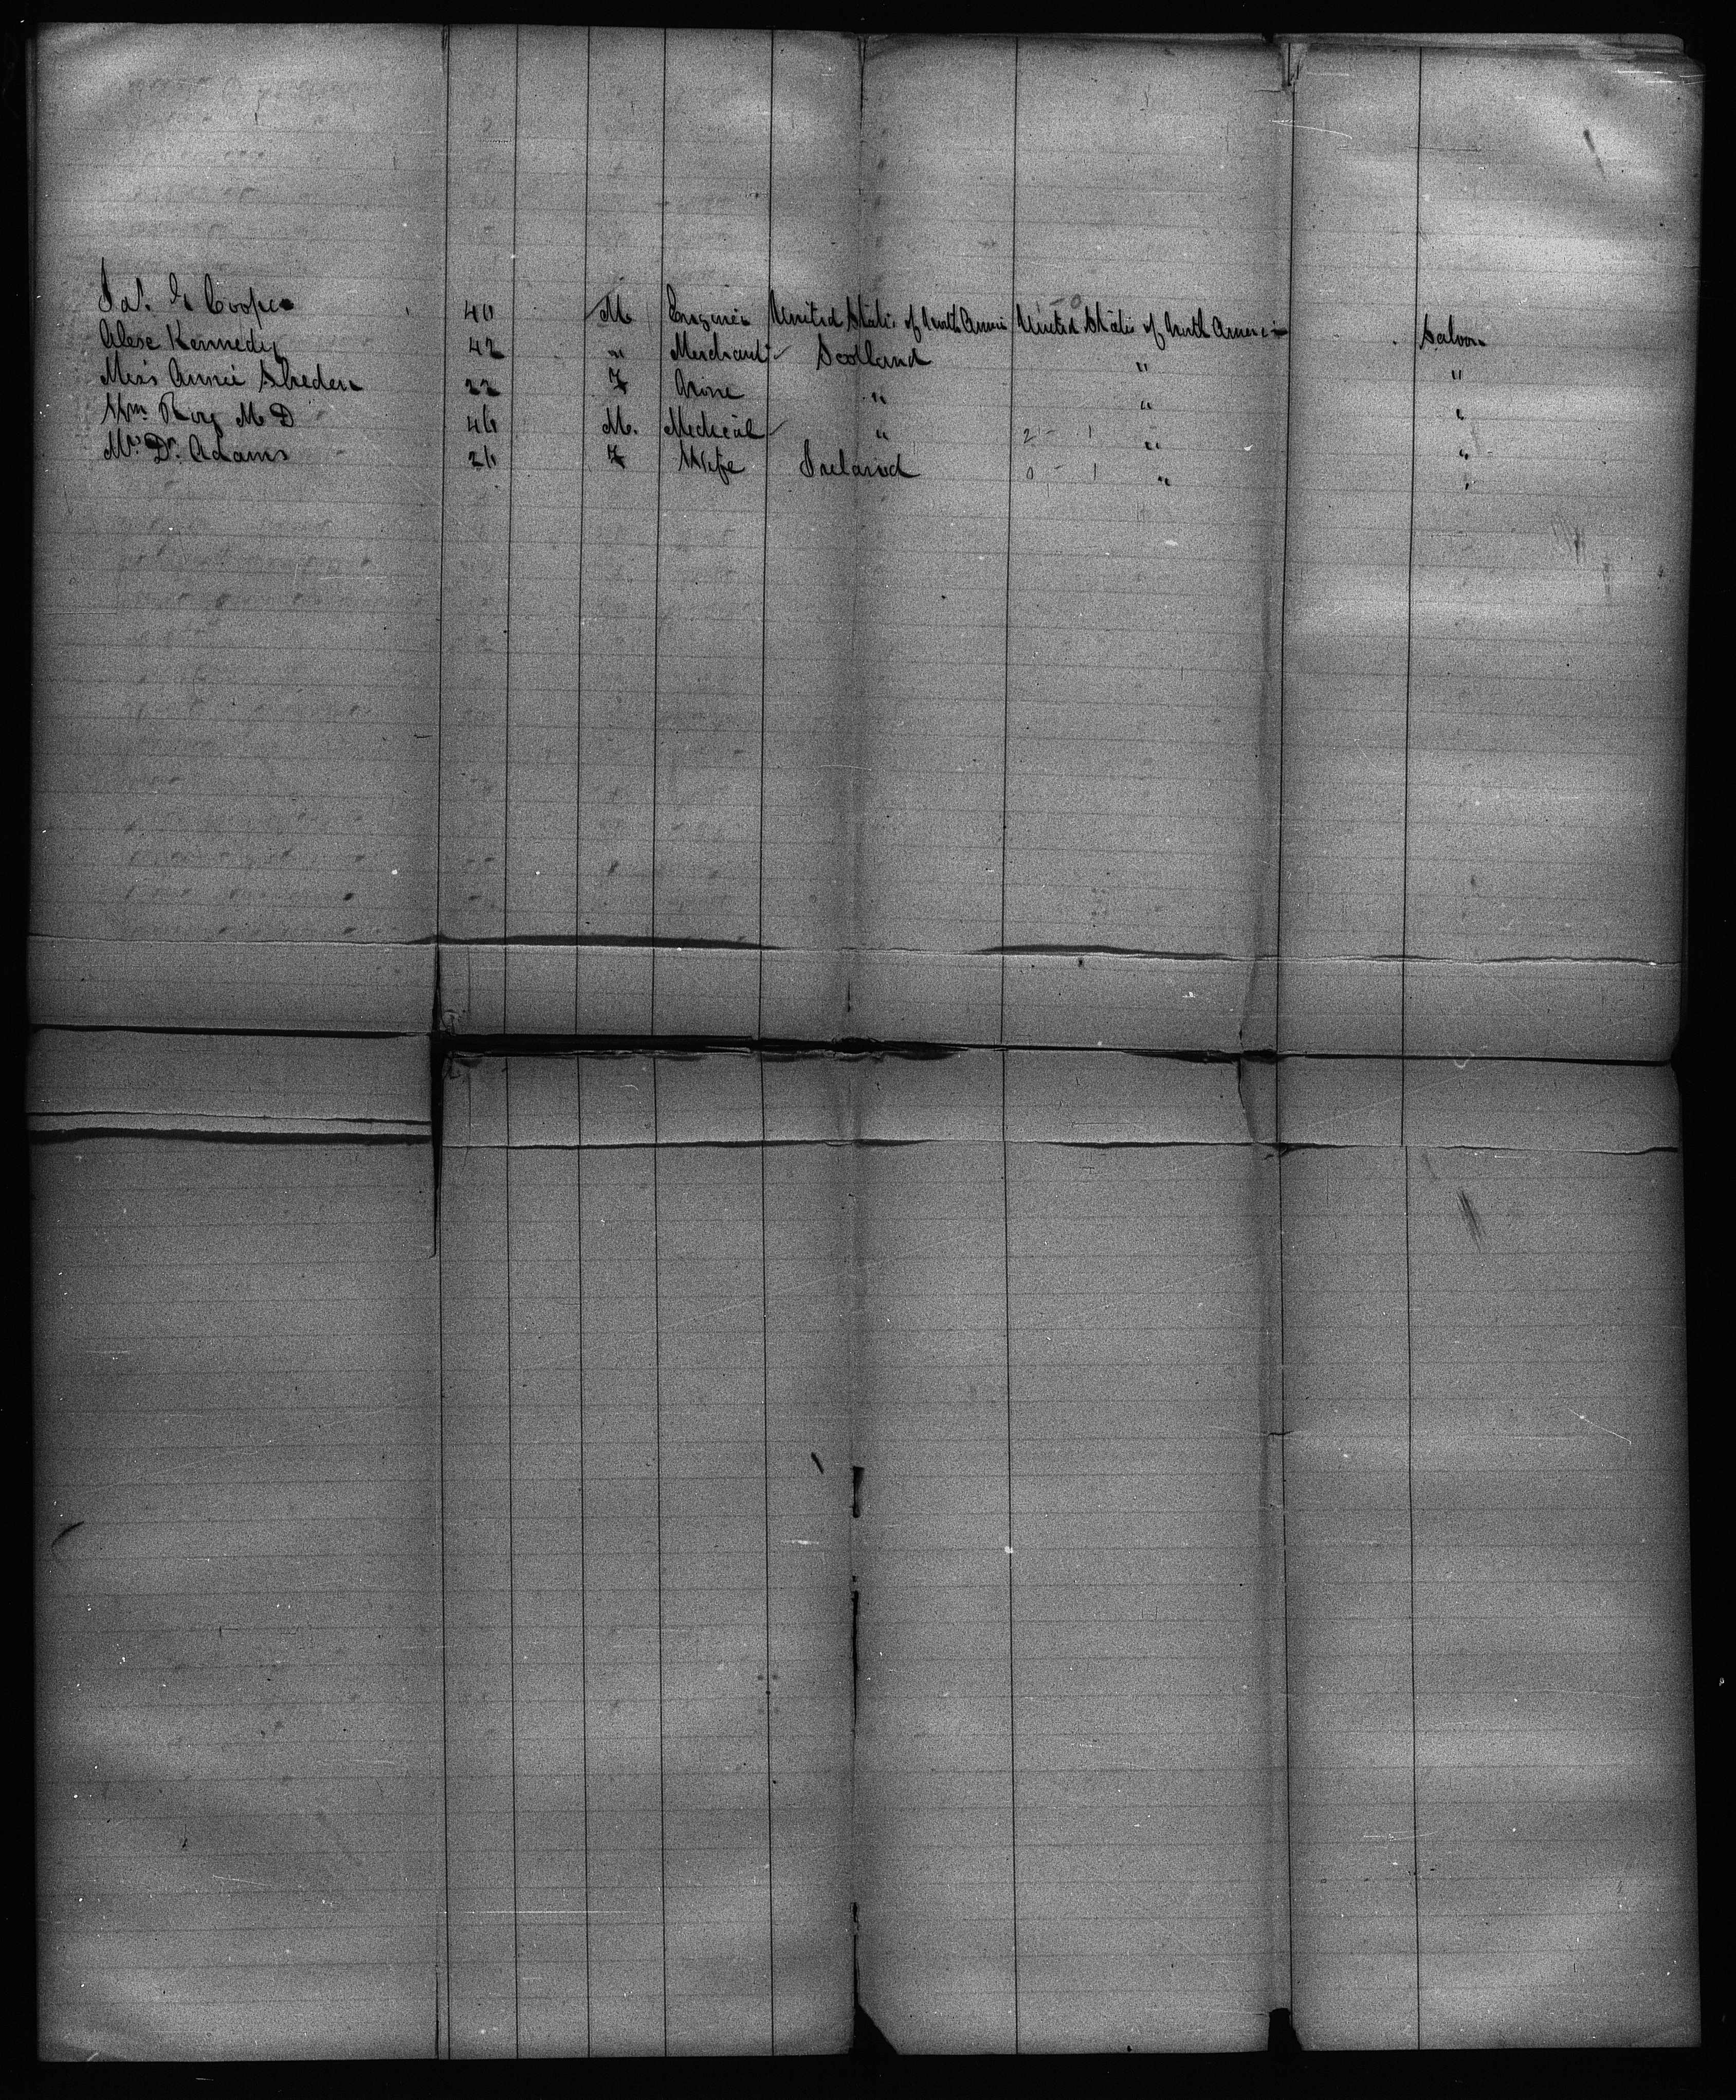 Jas. G Cooper 40 M Engineer United States of North America United States of North America Saloon
Alexr Kennedy 42 " Merchant Scotland " "
Miss Annie 22 F None " " "
Wm Roy M D 46 M. Medical " 2 - 1 " "
Mrs Dr. Adams 26 F Wife Ireland 0 - 1 " "